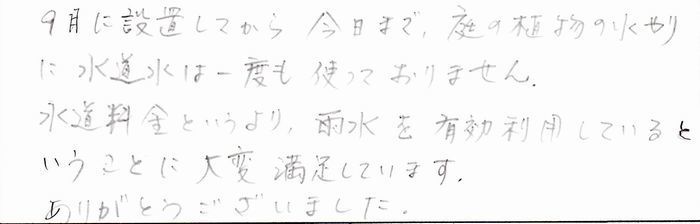 9月に設置してから今日まで、庭の植物の水やり
に水道水は一度も使っておりません。
水道料金というより、雨水を有効利用していると
いうことに大変満足しています。
ありがとうございました。